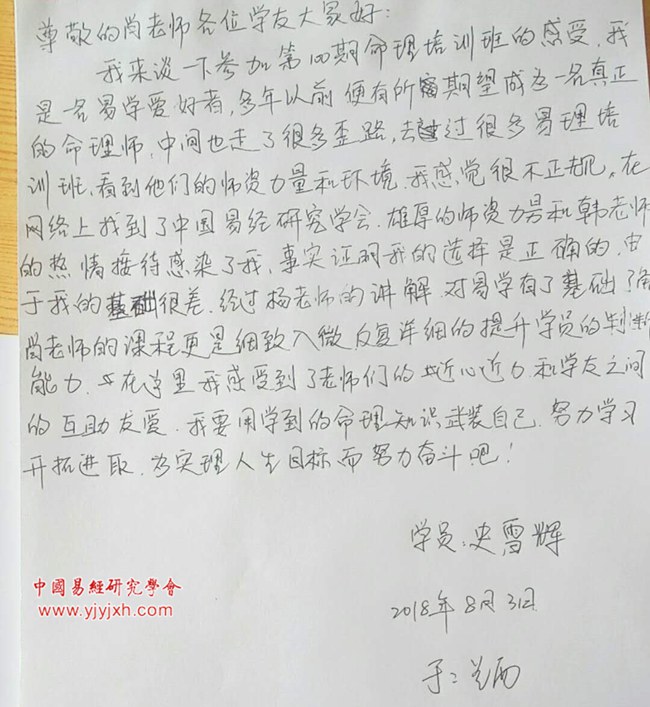 尊敬的尚老师各位学友大家好:
我来谈一下参加第100期命理培训班的感受,我
是一名易学爱好者,多年以前便有所期望成为一名真正
的命理师,中间也走了很多歪路,去过很多易理培
训班,看到他们的师资力量和环境,我感觉很不正规。在
网络上找到了中国易经研究学会,雄厚的师资力量和韩老师
的热情接待感染了我,事实证明我的选择是正确的,由
于我的基础很差,经过杨老师的讲解,对易学有了基础了解
尚老师的课程更是细致入微反复详细的提升学员的判断
能力,在这里我感受到了老师们的尽心尽力和学友之间
的互助友爱,我要用学到的命理知识武装自己,努力学习
开拓进取,为实现人生目标而努力奋斗吧!
学员:史雪辉
2018年8月31日
于:
中國易經研究學會
www.yjyjxh.com